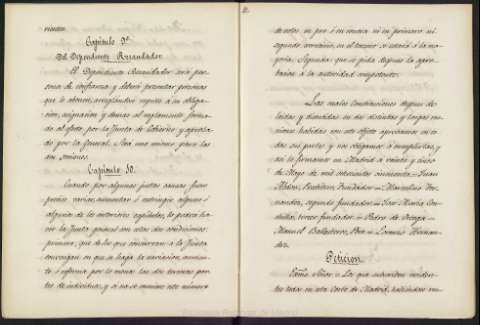 rientes.
Capitulo 9º
Del Dependiente Recaudador.
El Dependiente Recaudador será per-
sona de confianza y deberá presentar personas
que le abonen, arreglandose respeto a su obliga-
cion, asignacion y demas al reglamento forma-
do al efecto, por la Junta de Gobierno y aproba-
do por la General. Será uno mismo para las
dos sesiones.
Capitulo 10.
Cuando por algunas justas causas fuere
preciso variar, aumentar ó restringir alguno ó
algunos de los anteriores capitulos, lo podrá ha-
cer la Junta general con estas dos condiciones:
primera, que de los que concurran a la Junta
convengan en que se haga la variacion, aumen-
to ó reforma por lo menos las dos terceras par-
tes de individuos, y si no se reuniese este número
2.
de votos, en pro ó en contra ni en primero ni
segundo escrutinio, en el tercero se estará á la ma-
yoria. Segunda: que se pida despues la apro-
bacion á la autoridad competente.
Las cuales Constituciones despues de
leidas y discutidas en dos distintas y largas reu-
niones habidas con este objeto aprobamos en to-
das sus partes y nos obligamos á cumplirlas, y
así lo firmamos en Madrid á veinte y cinco
de Mayo de mil ochocientos cincuenta = Juan
fundador = Marcelino Her-
nandez, segundo fundador = José Maria
tercer fundador = Pedro de Ortega =
Manuel Ballesteros = Lorenzo Hernan-
dez.
Peticion
Exmo. Señor = Los que suscriben residen-
tes todos en esta Corte de Madrid, habiendose reu-
Biblioteca Regional de Madrid